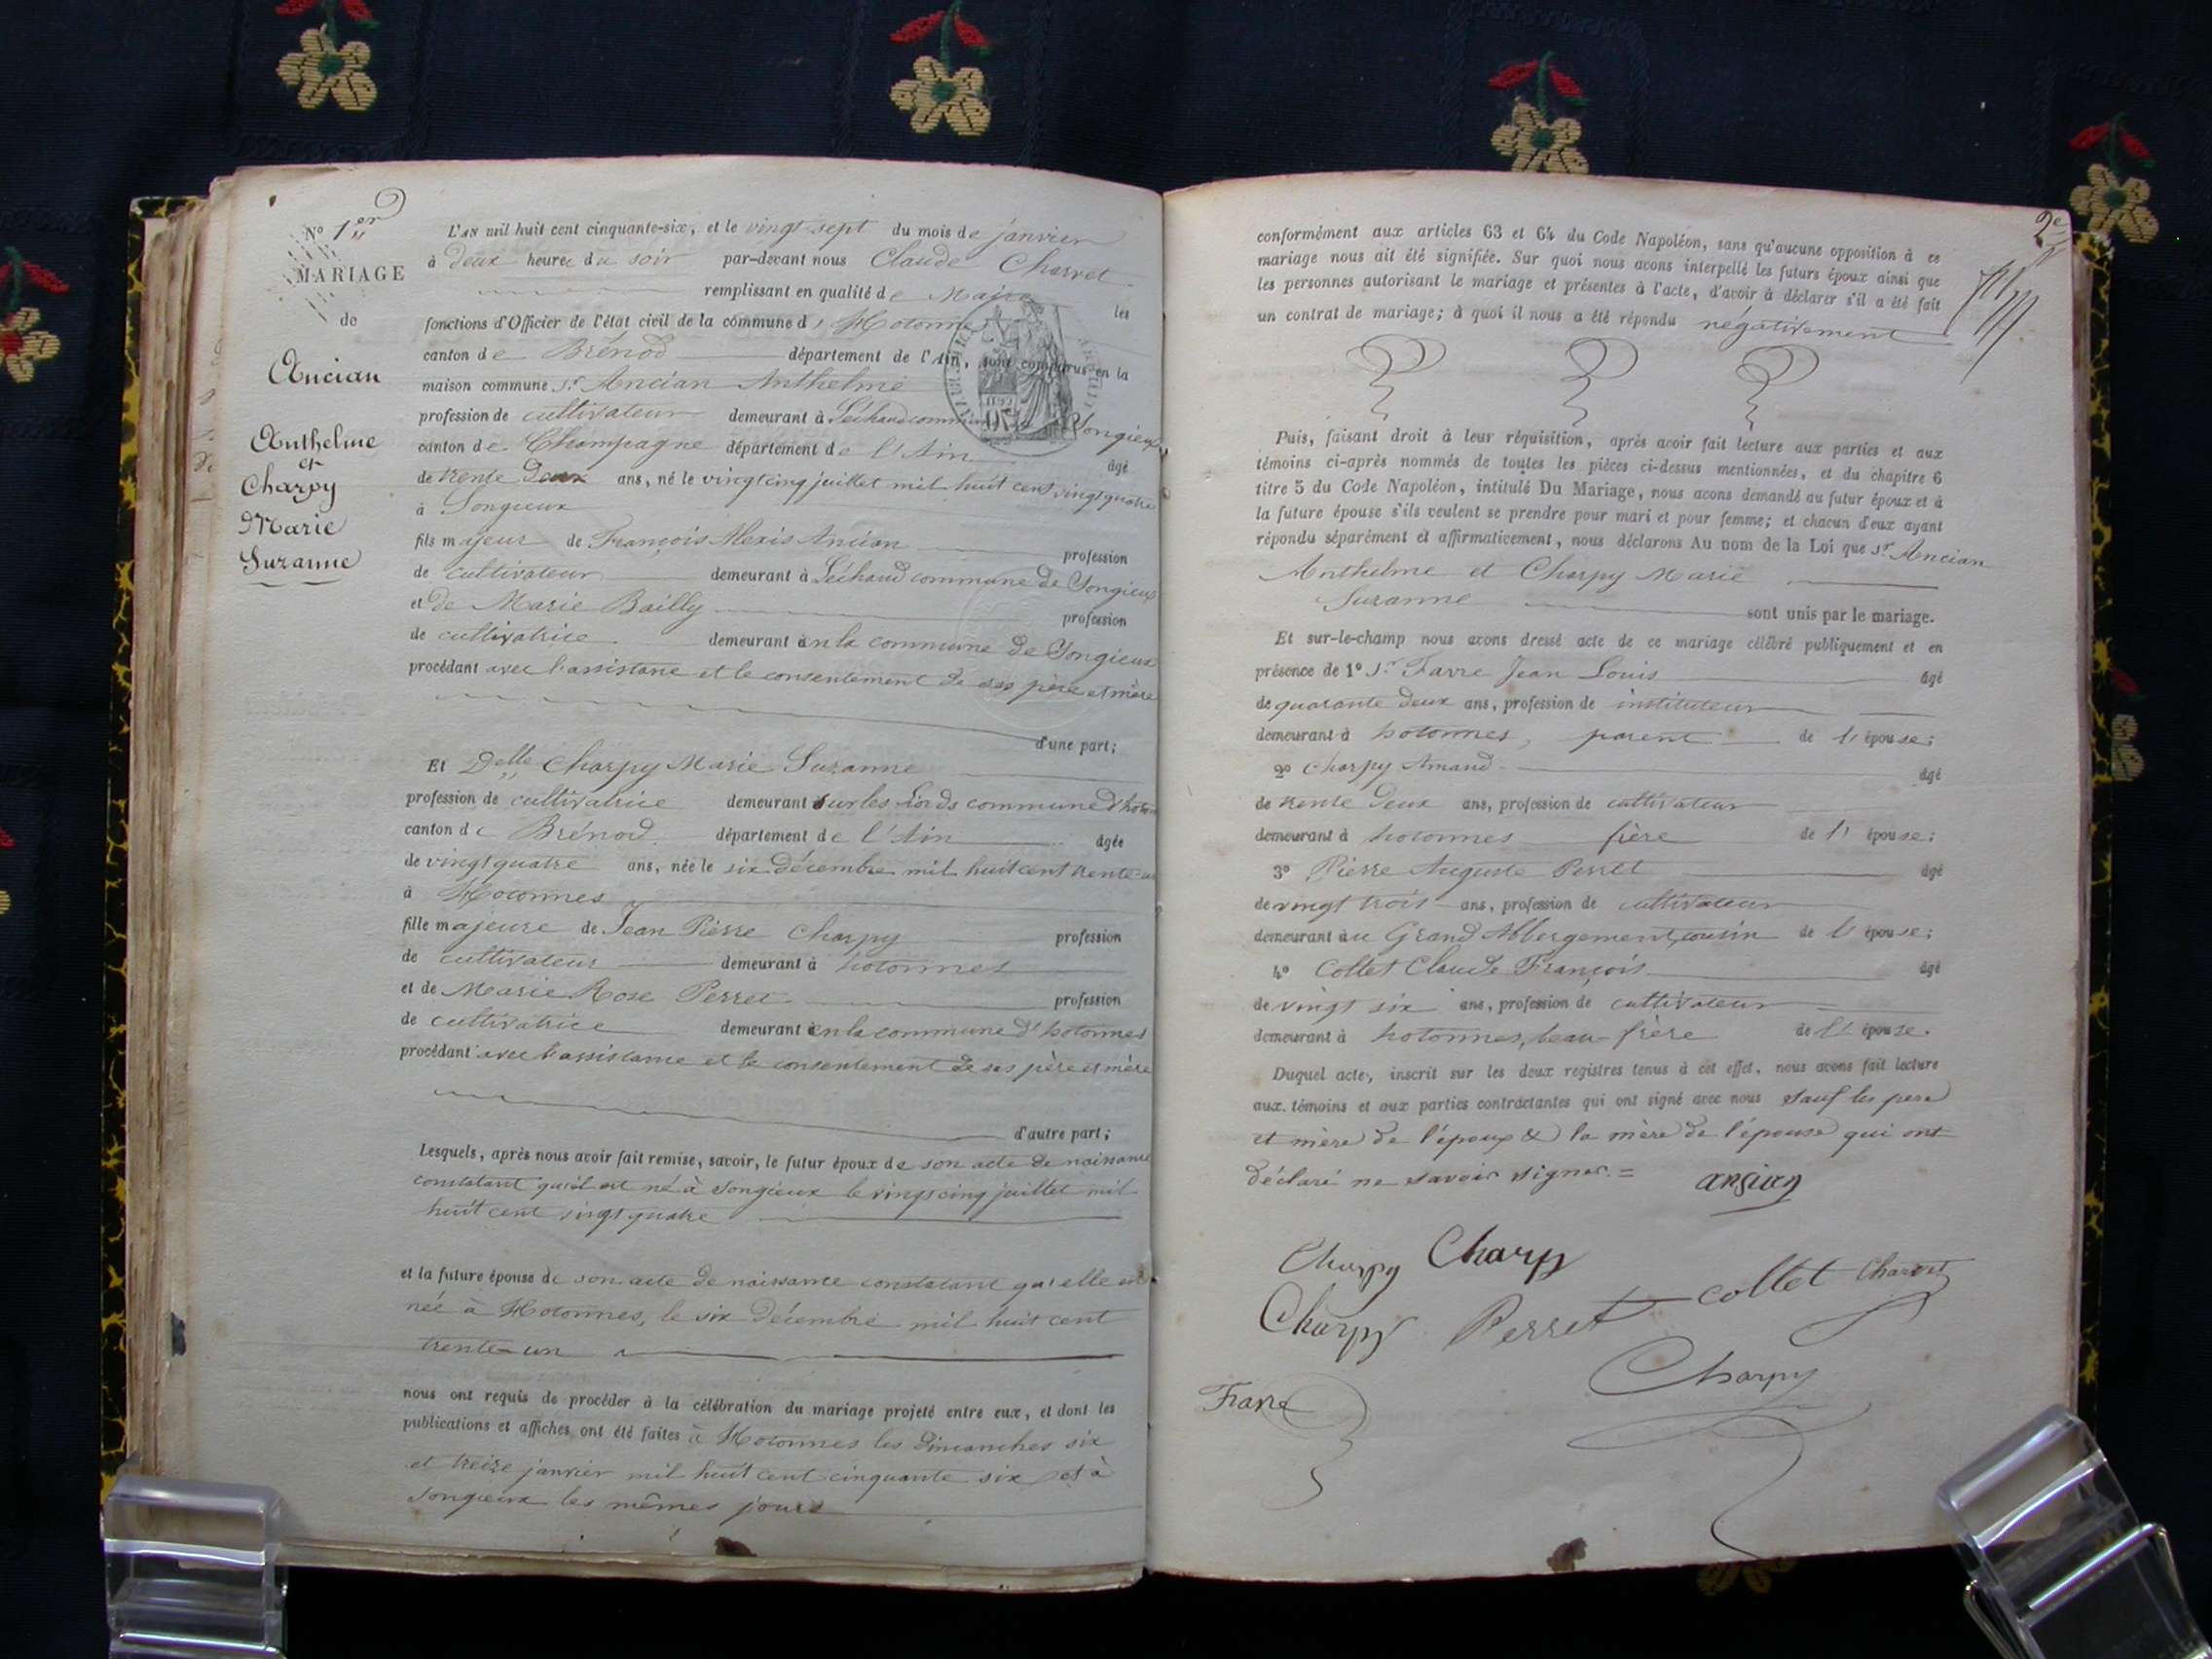 N° 1er
MARIAGE
de
Ancian
Anthelme
et
Charpy
Marie
Suzanne
L'AN mil huit cent cinquante-six, et le vingt sept du mois de janvier
à deux heures du soir par-devant nous Claude Charvet
remplissant en qualité de Maire les
fonctions d'Officier de l'état civil de la commune d' Hotonnes
canton de Brénod département de l'Ain, sont comparus en la
maison commune Sr Ancian Anthelme
profession de cultivateur demeurant à Léchaud commune de Songieux
canton de Champagne département de l'Ain âgé
de trente deux ans, né le vingt cinq juillet mil huit cent vingt quatre
à Songieux
fils majeur de François Alexis Ancian profession
de cultivateur demeurant à Léchaud commune de Songieux
et de Marie Bailly profession
de cultivatrice demeurant en la commune de Songieux
procédant avec l'assistane et le consentement de ses père et mère
d'une part;
Et Delle Charpy Marie Suzanne
profession de cultivatrice demeurant sur les commune d'hoton
canton de Brénod département de l'Ain âgée
de vingt quatre ans, née le six décembre mil huit cent trente un
à Hotonnes
fille majeure de Jean Pierre Charpy profession
de cultivateur demeurant à hotonnes
et de Marie Rose Perret profession
de cultivatrice demeurant en la commune d'hotonnes
procédant avec l'assistance et le consentement de ses père et mère
d'autre part;
Lesquels, après nous avoir fait remise, savoir, le futur époux de son acte de naissance
constatant qu'il est né à Songieux le vingt cinq juillet mil
huit cent vingt quatre
et la future épouse de son acte de naissance constatant qu'elle est
née à Hotonnes, le six Décembre mil huit cent
trente-un
nous ont requis de procéder à la célébration du mariage projeté entre eux, et dont les
publications et affiches ont été faites à Hotonnes les dimanches six
et treize janvier mil huit cent cinquante six et à
Songieux les mêmes jours
2e
conformément aux articles 63 et 64 du Code Napoléon, sans qu'aucune opposition à ce
mariage nous ait été signifiée. Sur quoi nous avons interpellé les futurs époux ainsi que
les personnes autorisant le mariage et présentes à l'acte, d'avoir à déclarer s'il a été fait
un contrat de mariage; à quoi il nous a été répondu négativement
Puis, faisant droit à leur réquisition, après avoir fait lecture aux parties et aux
témoins ci-après nommés de toutes les pièces ci-dessus mentionnées, et du chapitre 6
titre 5 du Code Napoléon, intitulé Du Mariage, nous avons demandé au futur époux et à
la future épouse s'ils veulent se prendre pour mari et pour femme; et chacun d'eux ayant
répondu séparément et affirmativement, nous déclarons Au nom de la Loi que Sr Ancian
Anthelme et Charpy Marie
Suzanne sont unis par le mariage.
Et sur-le-champ nous avons dressé acte de ce mariage célébré publiquement et en
présence de 1° Sr Favre Jean Louis âgé
de quarante deux ans, profession de instituteur
demeurant à hotonnes, parent de l'épouse;
2° Charpy Amand âgé
de trente deux ans, profession de cultivateur
demeurant à hotonnes frère de l'épouse;
3° Pierre Auguste Perret âgé
de vingt trois ans, profession de cultivateur
demeurant au Grand Abbergement, cousin de l'épouse;
4° Collet Claude François âgé
de vingt six ans, profession de cultivateur
demeurant à hotonnes, beau-frère de l'épouse.
Duquel acte, inscrit sur les deux registres tenus à cet effet, nous avons fait lecture
aux témoins et aux parties contractantes qui ont signé avec nous sauf les père
et mère de l'époux & la mère de l'épouse qui ont
déclaré ne savoir signer. =
ansian
Charpy Charpy
Charpy Perret collet Charvet
Charpy
Favre